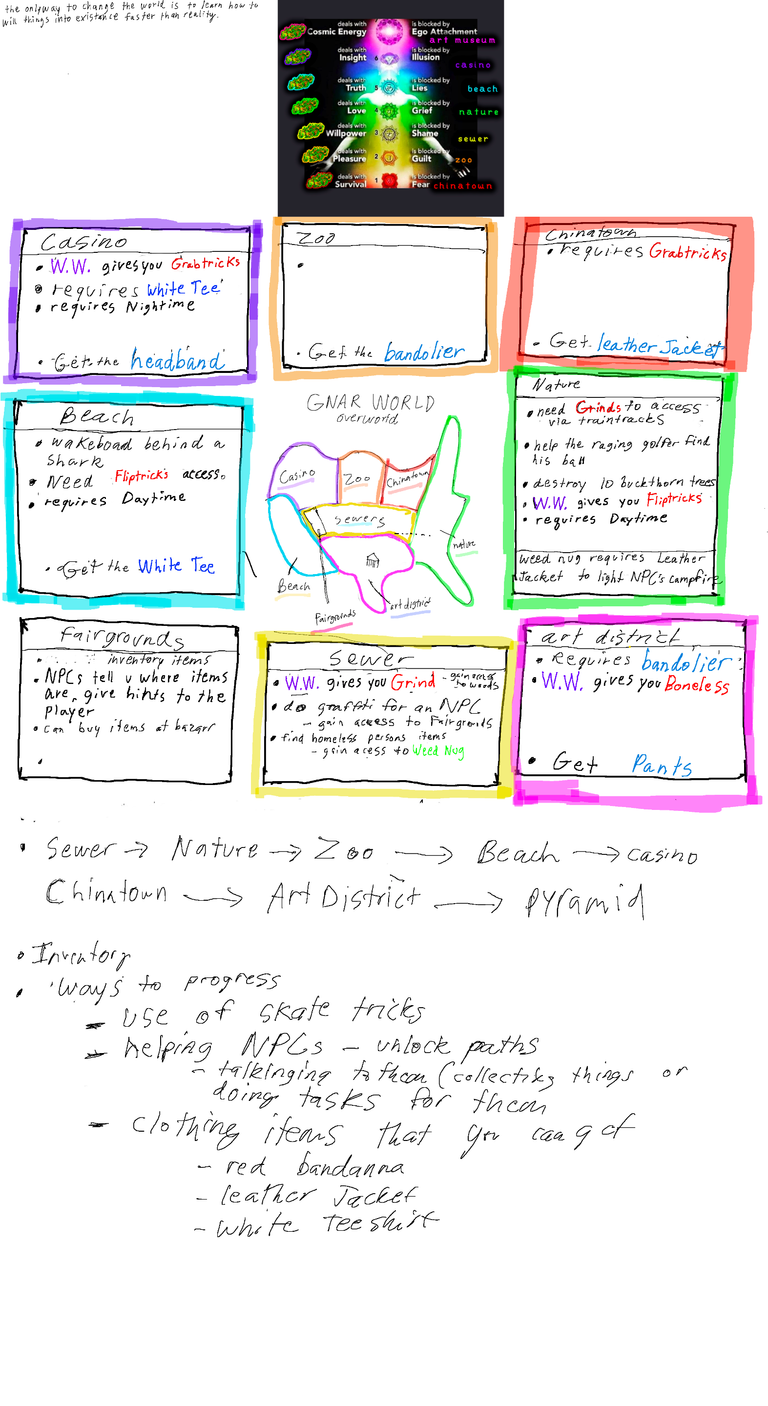 the only way to change the world is to learn how to
will things into existence faster than reality.
deals with
Cosmic Energy
is blocked by
Ego Attachment
art museum
deals with
Insight
6
is blocked by
Illusion
casino
deals with
Truth
5
is blocked by
Lies
beach
deals with
Love
4
is blocked by
Grief
nature
deals with
Willpower
3
is blocked by
Shame
sewer
deals with
Pleasure
2
is blocked by
Guilt
zoo
deals with
Survival
1
is blocked by
Fear
chinatown
Casino
• W.W. gives you Grabtricks
• requires White Tee
• requires Nightime
• Get the headband
Zoo
•
• Get the bandolier
Chinatown
• requires Grabtricks
• Get leather Jacket
Beach
• wakeboad behind a
shark
• Need Fliptricks access.
• requires Daytime
• Get the White Tee
GNAR WORLD
overworld
Casino
Zoo
Chinatown
Sewers
nature
Beach
Fairgrounds
art district
Nature
• need Grinds to access
via traintracks
• help the raging golfer find
his ball
• destroy 10 buckthorn trees
• W.W. gives you Fliptricks
• requires Daytime
weed nug requires Leather
Jacket to light NPC's campfire
Fairgrounds
• inventory items
• NPCs tell u where items
are, give hints to the
player
• can buy items at bazaar
•
Sewer
• W.W. gives you Grind - gain access
to woods
• do graffiti for an NPC
- gain access to Fairgrounds
• find homeless persons items
- gain acess to Weed Nug
art district
• Requires bandolier
• W.W. gives you Boneless
• Get Pants
• Sewer → Nature → Zoo → Beach → casino
Chinatown → Art District → pyramid
• Inventory
• Ways to progress
- use of skate tricks
- helping NPCs - unlock paths
- talkinging to them (collecting things or
doing tasks for them
- clothing items that you can get
- red bandanna
- leather Jacket
- white tee shirt